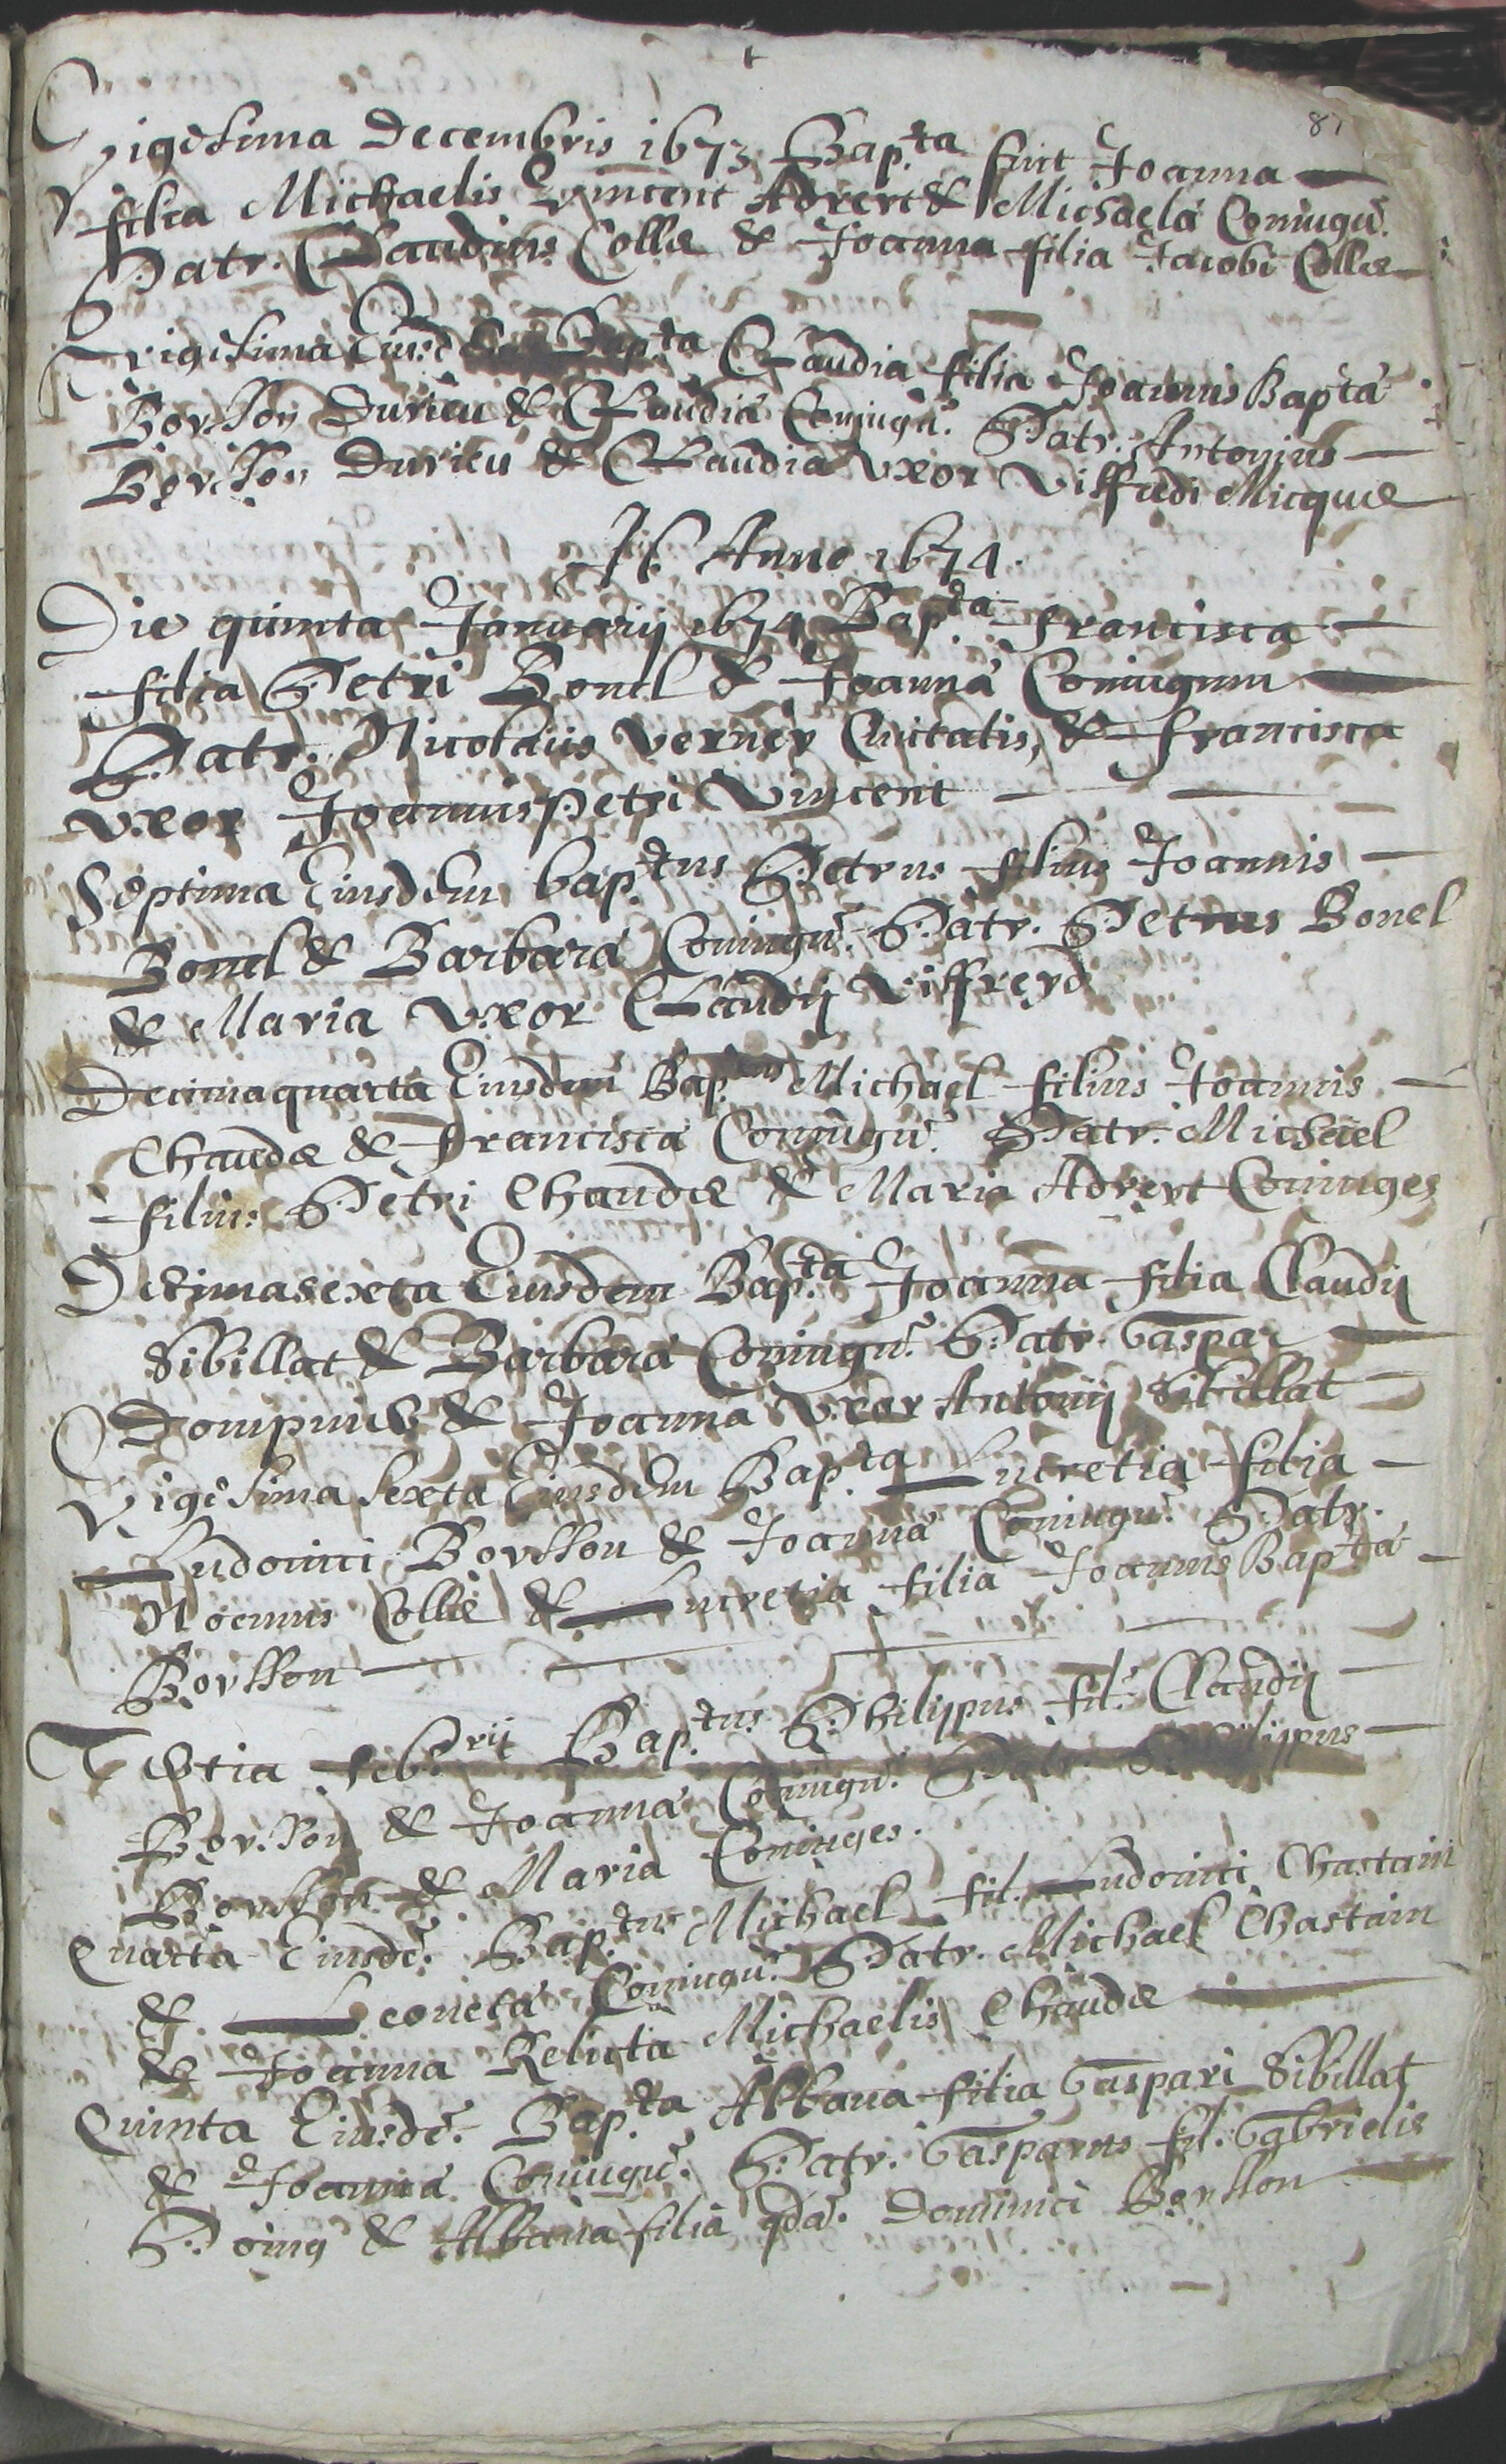 87
Vigesima Decembris 1673 Bap.ta fuit Joanna
filia Michaelis Vincent Advert & Michaela Coniugū.
Patr. Claudius Collæ & Joanna filia Jacobi Collæ
Trigesima Eiusd Bap.ta Claudia filia Joannis Bapta
Borsson Durieu & Claudia Coniugū. Patr. Antonius
Borsson Durieu & Claudia Vxor Viffredi Micquæ
Anno 1674.
Die quinta Januarij 1674 Bap.ta Francisca
filia Petri Bonel & Joanna Coniugum
Patr. Nicolaus Verner Ciuitatis, & Francisca
vxor Joannis Petri Vincent
Septima Eiusdem bap.tus Petrus filius Joannis
Bonel & Barbara Coniugū. Patr. Petrus Bonel
& Maria vxor Claudij Viffreyd
Decimaquarta Eiusdem Bap.tus Michael filius Joannis
Chaudæ & Francisca Coniugū. Patr. Michael
filius Petri Chaudæ & Maria Advert Coniuges
Decimasexta Eiusdem Bap.ta Joanna filia Claudij
Sibillat & Barbara Coniugū. Patr. Gaspar
& Joanna Vxor Antonij Sibillat
Vigesima sexta Eiusdem Bap.ta Lucretia filia
Ludouici Borsson & Joanna Coniugū. Patr.
Collæ & Lucretia filia Joannis Bapta
Borsson
Tertia feb.rij Bap.tus Philippus fil. Claudij
Borsson & Joanna Coniugū. Patr. Philippus
Borsson & Maria Coniuges.
Quarta Eiusdē. Bap.tus Michael fil. Ludouici Chastain
& Leoneta Coniugū. Patr. Michael Chastain
& Joanna Relicta Michaelis Chaudæ
Quinta Eiusdē. Bap.ta Albana filia Gaspari Sibillat
& Joanna Coniugū. Patr. Gasparus fil. Gabrielis
Poing & Albana filia qda. Dominici Borsson